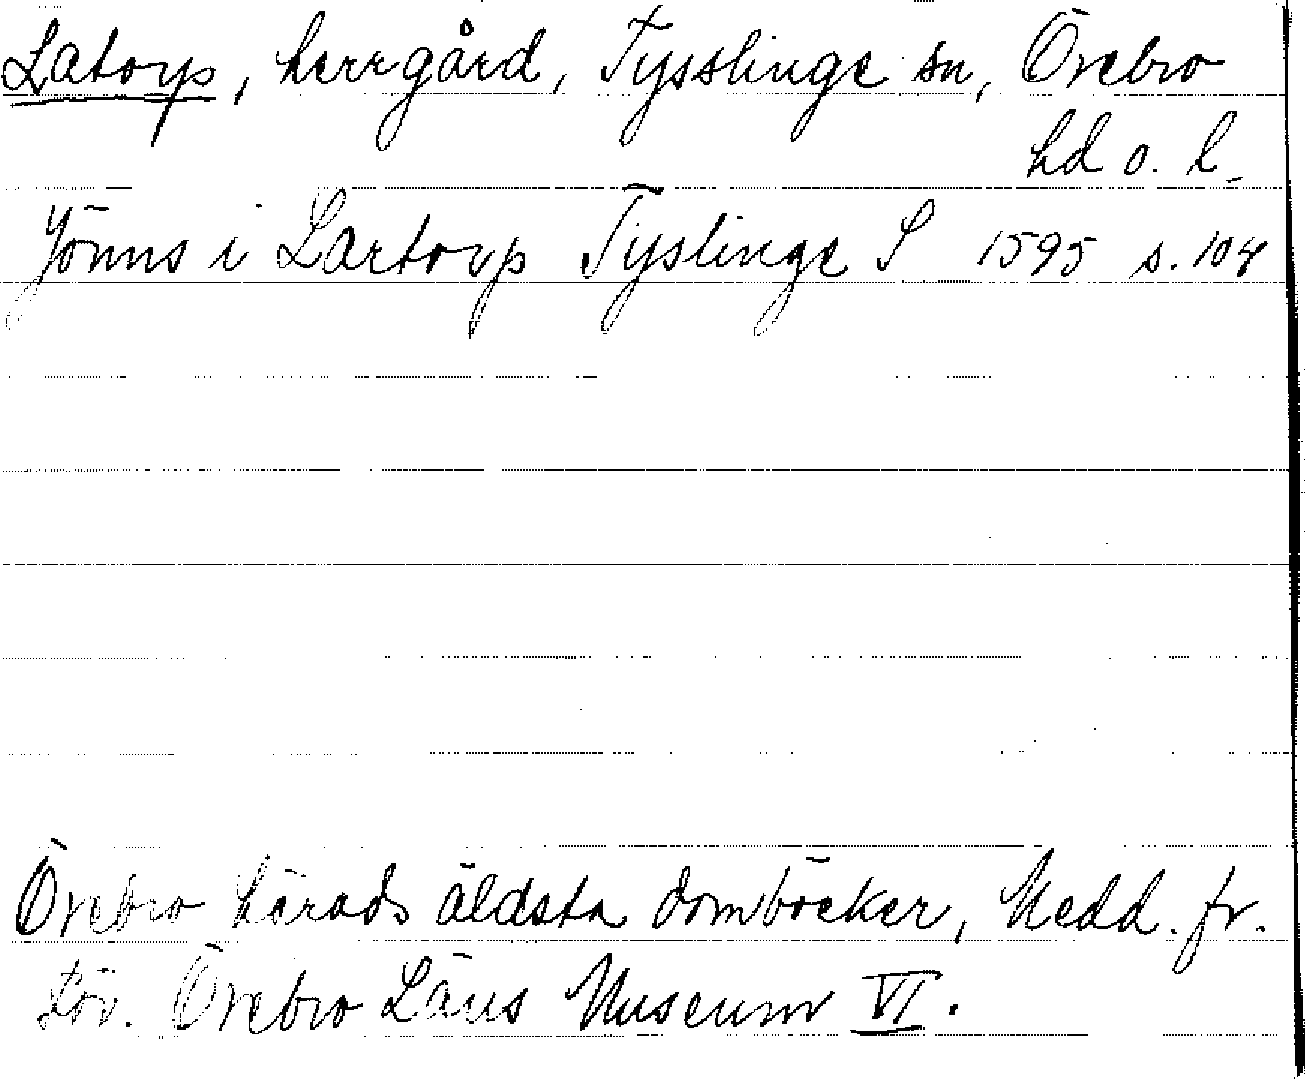 Latorp, herrgård, Tysslinge sn, Örebro
hd o. l.
Jönns i Lartorp Tyslinge S 1595 s. 104
Örebro härads äldsta domböcker, Medd. fr.
För. Örebro Läns Museum VI.